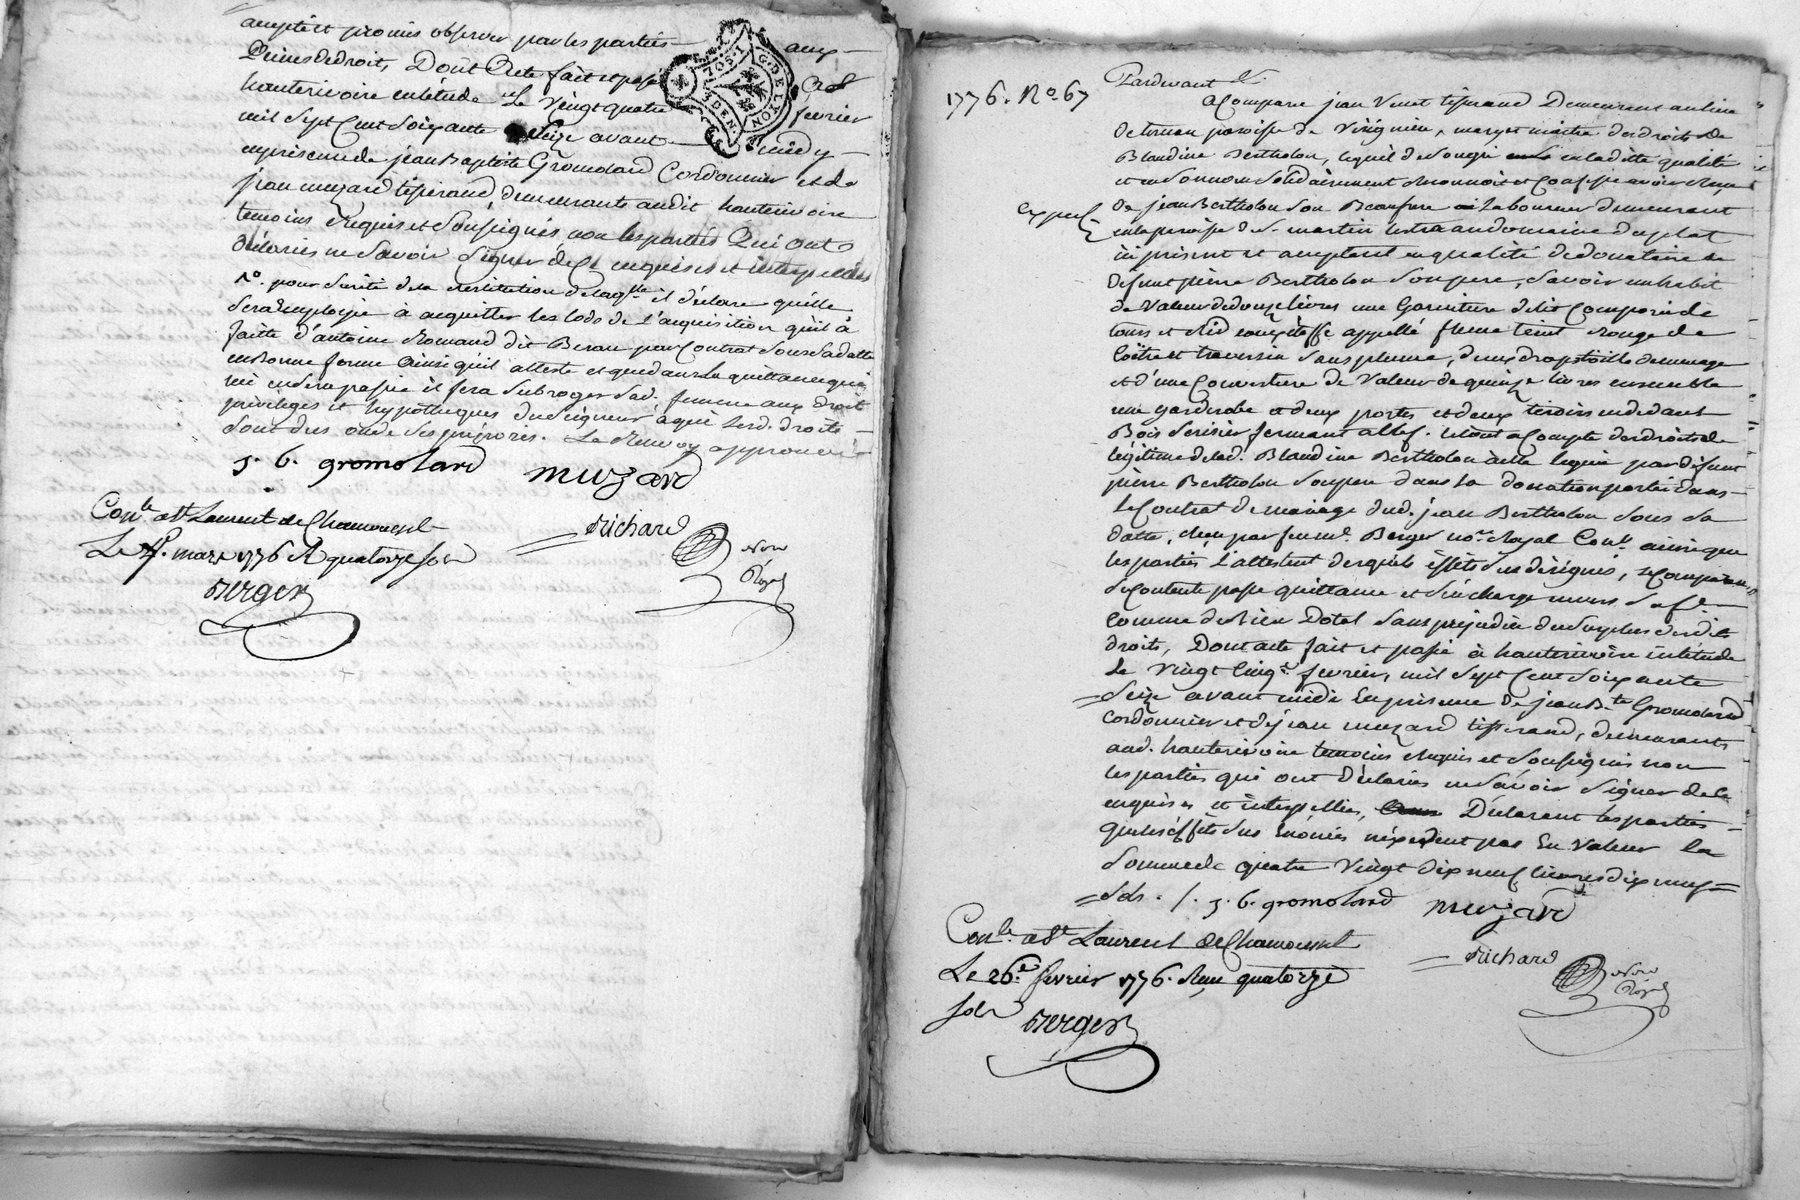 accepté et promis observer par les parties aux
Peines de droit, Dont Acte fait et passé Aud.
hauterivoire en l'etude Le Vingt quatre fevrier
mil Sept Cent Soixante Seize avant midy
en presence de jean Baptiste Gromolard Cordonnier et de
jean muzard tisserand, demeurants audit hauterivoire
temoins requis et Soussignés non les parties Qui ont
déclarées ne Savoir Signer de ce enquises et interpellées
pour Sureté de la restitution de laq.lle il déclare quelle
Sera Employée à acquitter les lods de l'acquisition qu'il à
faitte d'antoine Romand dit Berau par Contrat Sous Sa datte
en Bonne forme Ainsi qu'il atteste et que dans la quittance qui
en Sera passée il fera Subroger Sad. femme aux droit
privileges et hypotheques du Seigneur à qui Lesd. droits
Sont dus ou de Ses préposés. Le Renvoy approuvé
j. b. gromolard muzard
Con.lé a St. Laurent de Chamousset
Le 4. mars 1776 R quatorze sols
Berger
Richard
Nore
Royal
G. DE LYON
3 DEN.
1776. No. 67
Pardevant &.
A Comparu jean Vinet tisserand Demeurant au lieu
de tornau paroisse de Virignieu, mary et maitre des droits de
Blandine Bertholon, lequel de Son gré en la ditte qualité
et en Son nom Solidairement Reconnoit et Confesse avoir Reçu
de jean Bertholon Son Beaufrere Laboureur demeurant
en la paroisse de St. martin lestra au domaine du plat
ici present et acceptant en qualité de donataire de
defunt pierre Bertholon Son pere, Savoir un habit
de Valeur de douze livres une Garniture de lit Composée de
tours et Ciel en etoffe appellé flene teint Rouge de
Coëtre et traversin Sans plume, deux draps toille de menage
et d'une Couverture de Valeur de quinze livres ensemble
une garderobe et deux portes et deux tiroirs en dedans
Bois Serisier fermant à Clef. le tout a Compte des droits de
légitime de lad. Blandine Bertholon à elle legué par defunt
pierre Bertholon Son pere dans la donation portée dans
le Contrat de mariage dud. jean Bertholon Sous Sa
datte, Reçu par feu m.e Berger no.re Royal Con.lé ainsi que
les parties L'attestent desquels éffets Sus désignés, le Comparant
Se Contente passe quittance et décharge envers
Comme de Bien Dotal Sans prejudice du Surplus desdits
droits, Dont acte fait et passé à hauterivoire en l'étude
Le Vingt Cinq.e fevrier, mil Sept Cent Soixante
Seize avant midi En presence de jean B.te Gromolard
Cordonnier et de jean muzard tisserand, demeurants
aud. hauterivoire temoins requis et Soussignés non
les parties qui ont déclarées ne Savoir Signer de Ce
enquises et interpellées, Déclarent les parties
que les éffets Sus Enoncés n'éxcedent pas En Valeur la
Somme de quatre Vingt dix neuf livres dix neuf
Sols. /. j. b. gromolard muzard
Con.lé a St. Laurent de Chamousset
Le 26.e fevrier 1776. Reçu quatorze
sols Berger
Richard
Nore
Royal